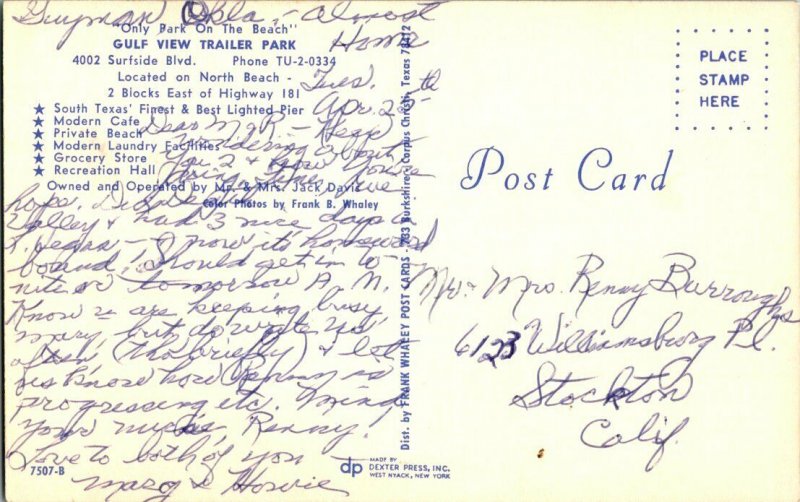 Guyman Okla. - Almost
Home
Tues. 
Apr. 25th
"Only Park On The Beach"
GULF VIEW TRAILER PARK
4002 Surfside Blvd. Phone TU-2-0334
Located on North Beach -
2 Blocks East of Highway 181
★ South Texas' Finest & Best Lighted Pier
★ Modern Cafe
★ Private Beach
★ Modern Laundry Facilities
★ Grocery Store
★ Recreation Hall
Owned and Operated by Mr. & Mrs. Jack Davis
Color Photos by Frank B. Whaley
Dear M & R. - Been
wondering about
you 2 & how you're
doing. Fine, we
hope. Did
Valley & had 3 nice days in
L. Vegas - & now it's homeward
bound. Should get in to
nite or tomorrow A.M.
Know u are keeping busy
Mary, but do write us
often (tho briefly) & let
us know how Renny is
progressing etc. Mind
your nurse Renny!
Love to both of you
Marg & Howie
7507-B
Dist. by FRANK WHALEY POST CARDS - 733 Burkshire, Corpus Christi, Texas 78412
dp MADE BY
DEXTER PRESS, INC.
WEST NYACK, NEW YORK
PLACE
STAMP
HERE
Post Card
Mr. & Mrs. Renny Burroughs
6123 Williamsburg Pl.
Stockton
Calif.